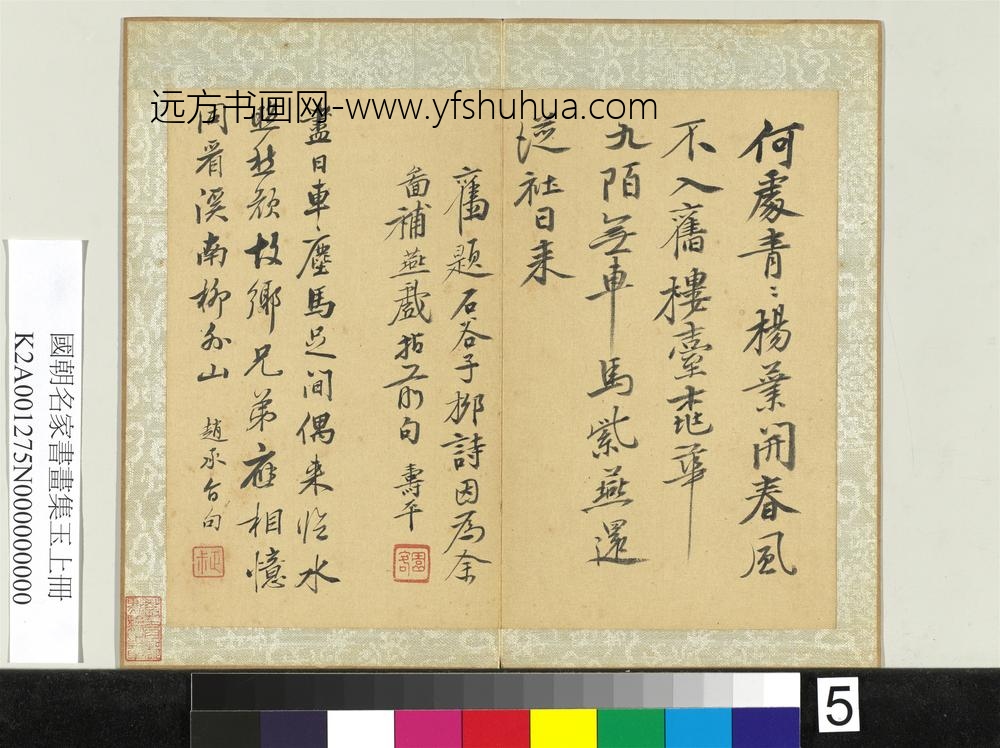 远方书画网-www.yfshuhua.com
何處青〻楊葉開春風
不入舊樓臺華
九陌無車馬紫燕還
從社日来
舊題石谷子柳詩因為余
啚補燕戲拈前句 壽平
盡日車塵馬足間偶来臨水
照愁顏故鄉兄弟應相憶
同看溪南柳外山 趙承旨句
國朝名家書畫集玉上冊
K2A001275N000000000
5